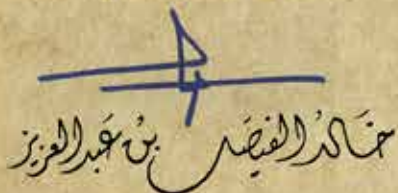 خالد الفيصل بن عبدالعزيز